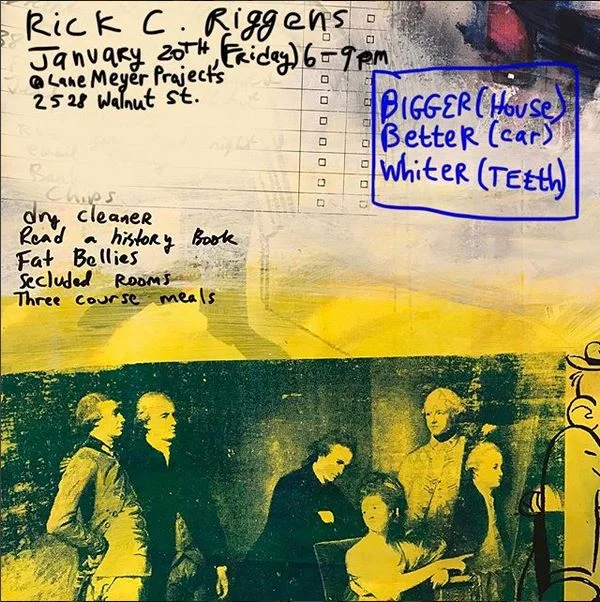 Rick C. Riggens
January 20TH, (Friday) 6-9pm
@ Lane Meyer Prajects
2528 Walnut St.
BIGGER (House)
BetteR (car)
WhiteR (TEEth)
Chips
dry cleaneR
Read a history Book
Fat Bellies
Secluded Rooms
Three course meals